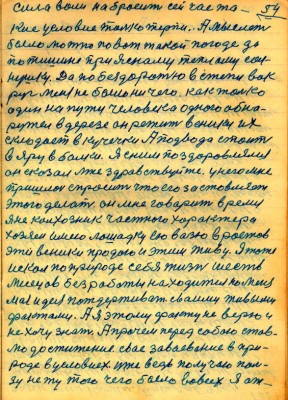 сила воли набросит сей час та- 54
кие условие только терпи. А мыслет
было мотто по вот такой погоде до
по тишине при ясному, теплому сон-
нушку. Да по бездоротю в степи вок
руг меня не было ничего. как только
один на пути человека одного обна-
ружел в дерезе он режит веники их
складает в кучечки А подвода стоит
в яру в балки. Я с ним поздоровлялся
он сказал мне здравствуйте. у него мне
пришлос спросит что его застовляет
этого делат. он мне говарит время
я не колхозник частного характера
хозяен имею лошадку ею вазю в ростов
эти веники продаю и этим живу. Я тоже
искал по природе себя жизт шесть
месецов без работы находится но меня
мая идея потдерживает сваими живыми
фактами. А я этому факту не верю и
не хочу знат. А прочем перед собою став-
лю достижение свае забаевение в при-
роде в условиех. уже ведь получаю пол-
зу не ту того чего было вовсех Я ож-